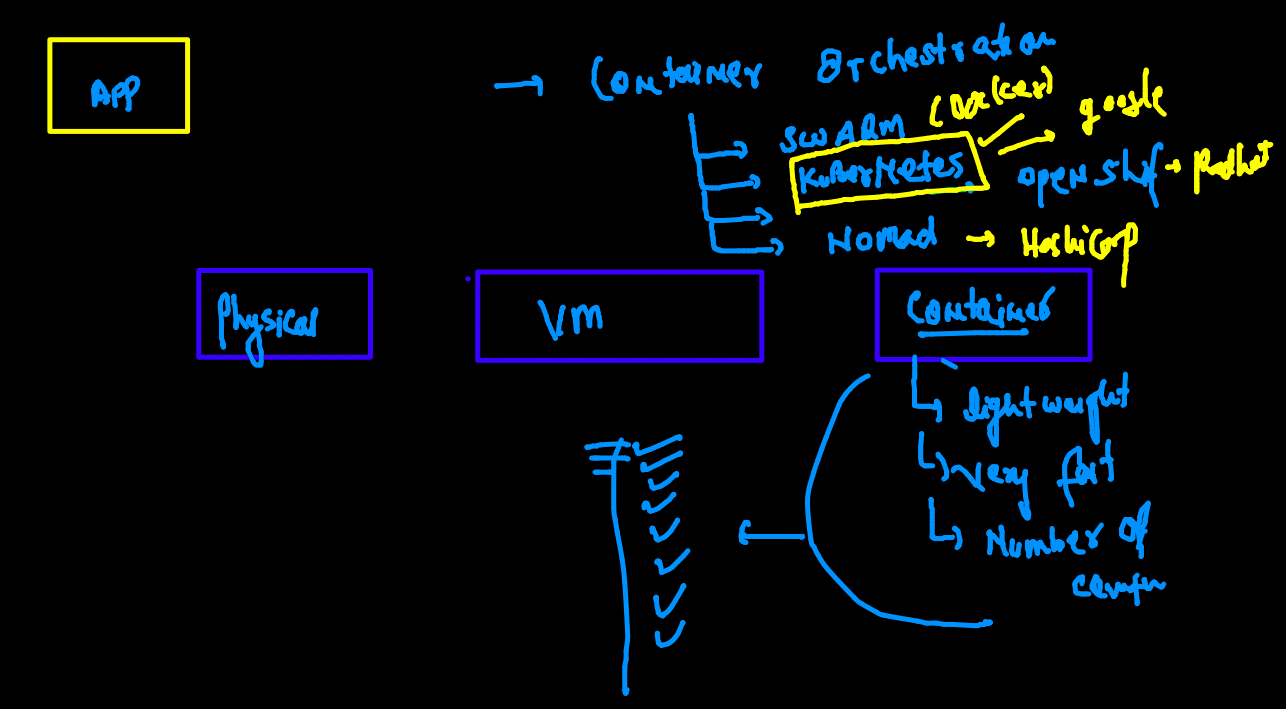 APP
→ Container Orchestration
SWARM (Docker)
Kubernetes → google
openshif → Redhat
Nomad → Hashicorp
Physical
VM
Container
light weight
very fast
Number of